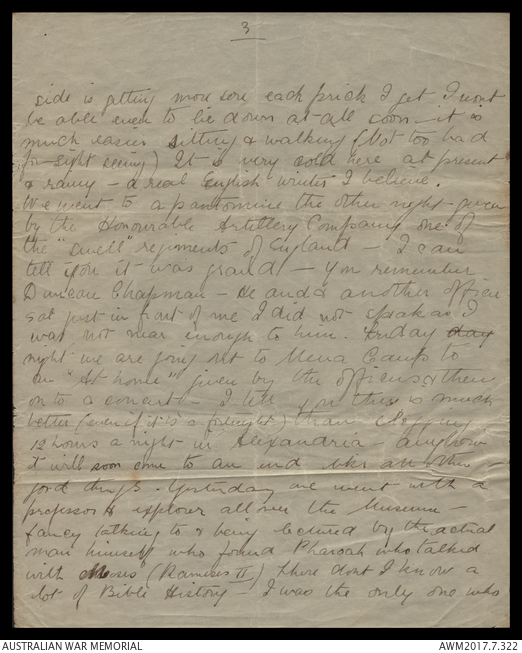 3
side is getting more sore each prick I get I wont
be able even to lie down at all soon - it is
much easier sitting & walking (Not too bad
for sight seeing) It is very cold here at present
& rainy - a real English winter I believe.
We went to a pantomime the other night - given
by the Honourable Artillery Company one of
the "swell" regiments of England - I can
tell you it was grand - you remember
Duncan Chapman - He and another officer
sat just in front of me I did not speak as I
was not near enough to him. Friday day
night we are going out to Mena Camp to
an "At home" given by the officers & then
on to a concert - I tell you this is much
better (even if it's a fortnight) than slogging
12 hours a night in Alexandria - anyhow
it will soon come to an end like all other
good things. Yesterday we went with a
professor & explorer all over the Museum -
fancy talking to & being lectured by the actual
man himself who found Pharoah who talked
with Moses (Ramises II) there dont I know a
lot of Bible History - I was the only one who
AUSTRALIAN WAR MEMORIAL
AWM2017.7.322